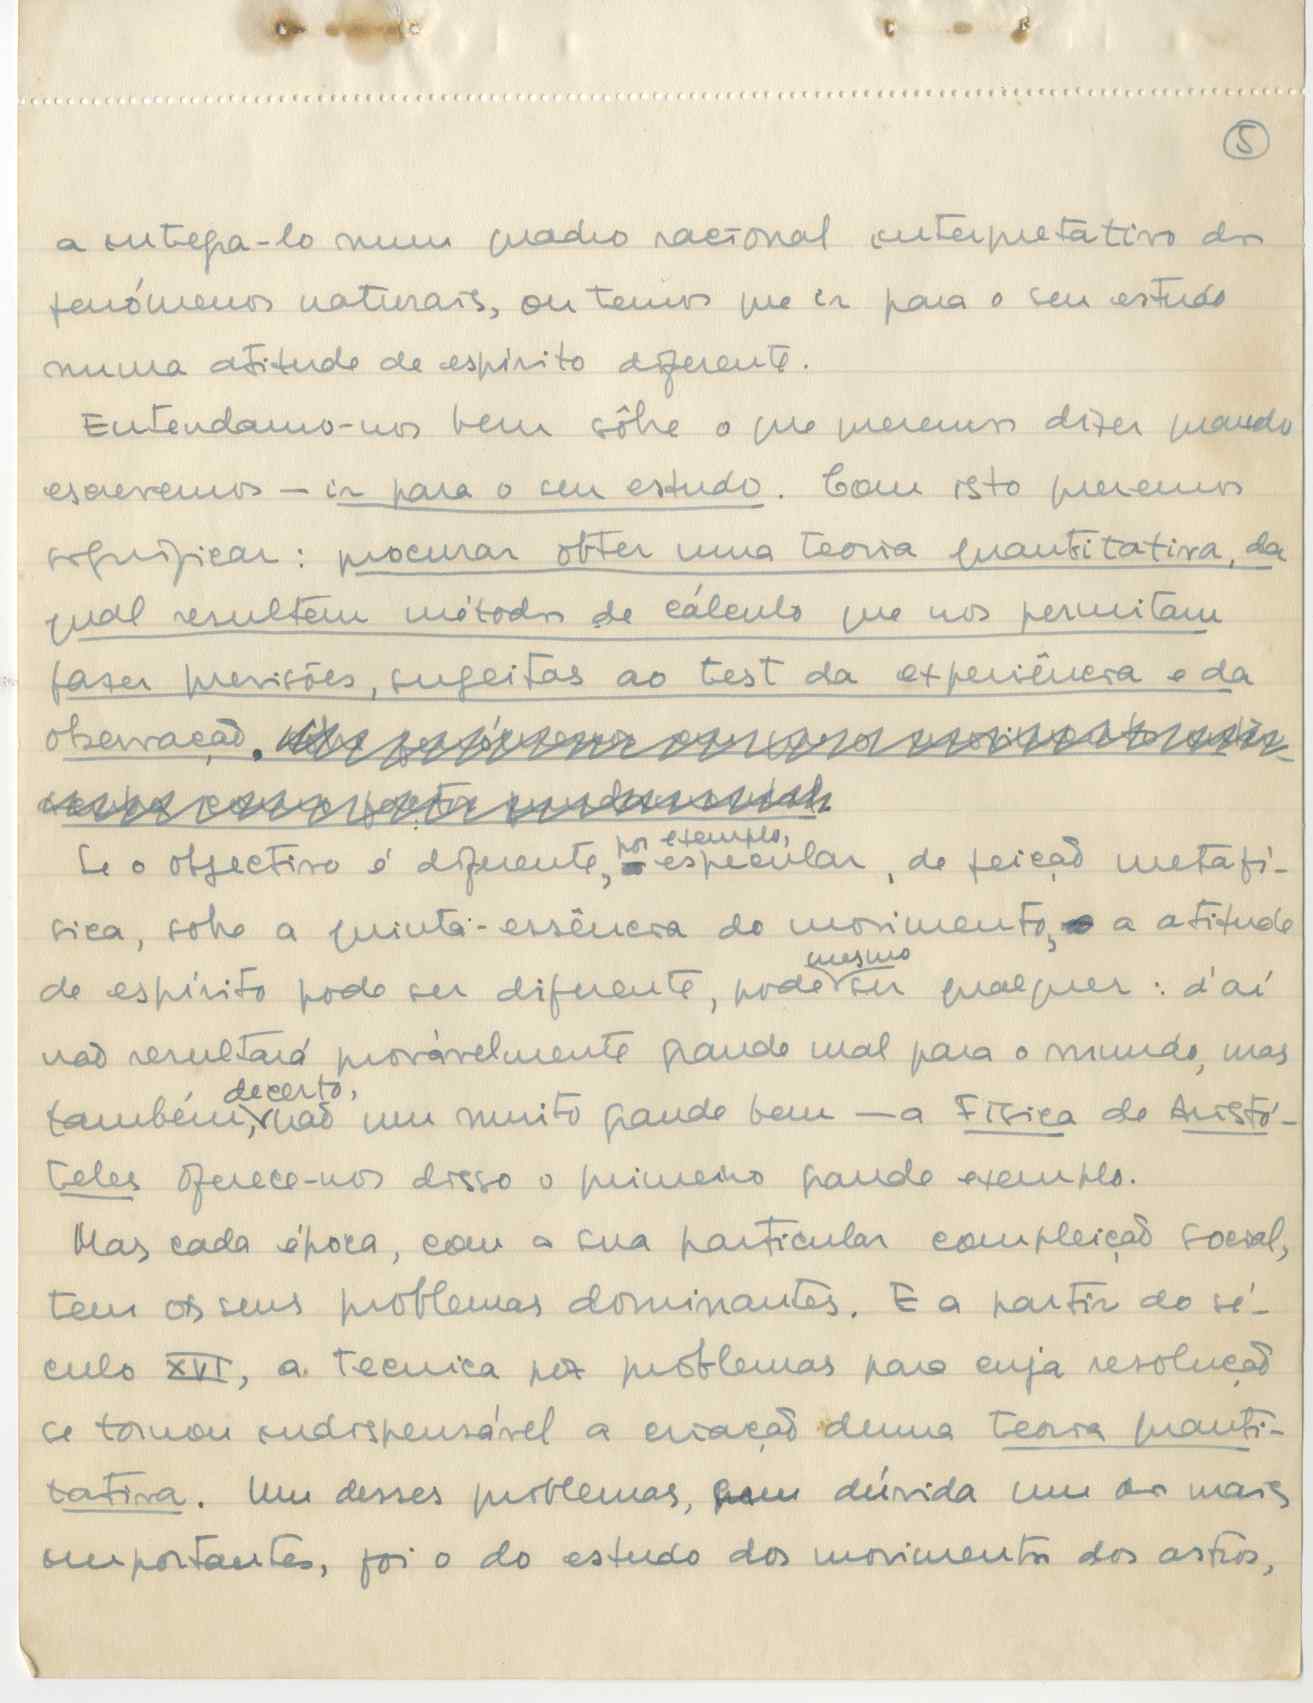 5
a integra-lo num quadro racional interpretativo dos
fenómenos naturais, ou temos que ir para o seu estudo
numa atitude de espírito diferente.
Entendamo-nos bem sôbre o que queremos dizer quando
escrevemos — ir para o seu estudo. Com isto queremos
significar: procurar obter uma teoria quantitativa, da
qual resultem métodos de cálculo que nos permitam
fazer previsões, sugeitas ao test da experiência e da
observação.
Se o objectivo é diferente, por exemplo, especular, de feição metafí-
sica, sobre a quinta-essência do movimento, a atitude
de espírito pode ser diferente, pode mesmo ser qualquer: d'aí
não resultará provávelmente grande mal para o mundo, mas
também, decerto, não um muito grande bem — a Física de Aristó-
teles oferece-nos disso o primeiro grande exemplo.
Mas cada época, com a sua particular compleição social,
tem os seus problemas dominantes. E a partir do sé-
culo XVI, a tecnica poz problemas para cuja resolução
se tornou indispensável a criação duma teoria quanti-
tativa. Um desses problemas, sem dúvida um dos mais
importantes, foi o do estudo dos movimentos dos astros,